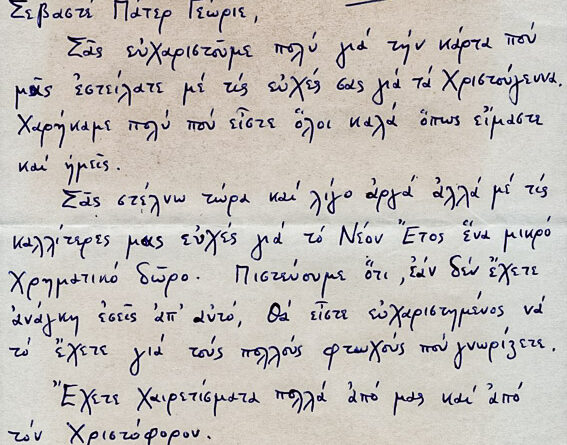 Σεβαστέ Πάτερ Γεώργιε,
Σᾶς εὐχαριστοῦμε πολύ γιά τήν κάρτα πού
μᾶς ἐστείλατε μέ τίς εὐχές σας γιά τά Χριστούγεννα.
Χαρήκαμε πολύ πού εἶστε ὅλοι καλά ὅπως εἴμαστε
καί ἡμεῖς.
Σᾶς στέλνω τώρα καί λίγο ἀργά ἀλλά μέ τίς
καλλίτερες μας εὐχές γιά τό Νέον Ἔτος ἕνα μικρό
χρηματικό δῶρο. Πιστεύουμε ὅτι, ἐάν δέν ἔχετε
ἀνάγκη ἐσεῖς ἀπ' αὐτό, θά εἶστε εὐχαριστημένος νά
τό ἔχετε γιά τούς πολλούς φτωχούς πού γνωρίζετε.
Ἔχετε χαιρετίσματα πολλά ἀπό μας καί ἀπό
τόν Χριστόφορον.